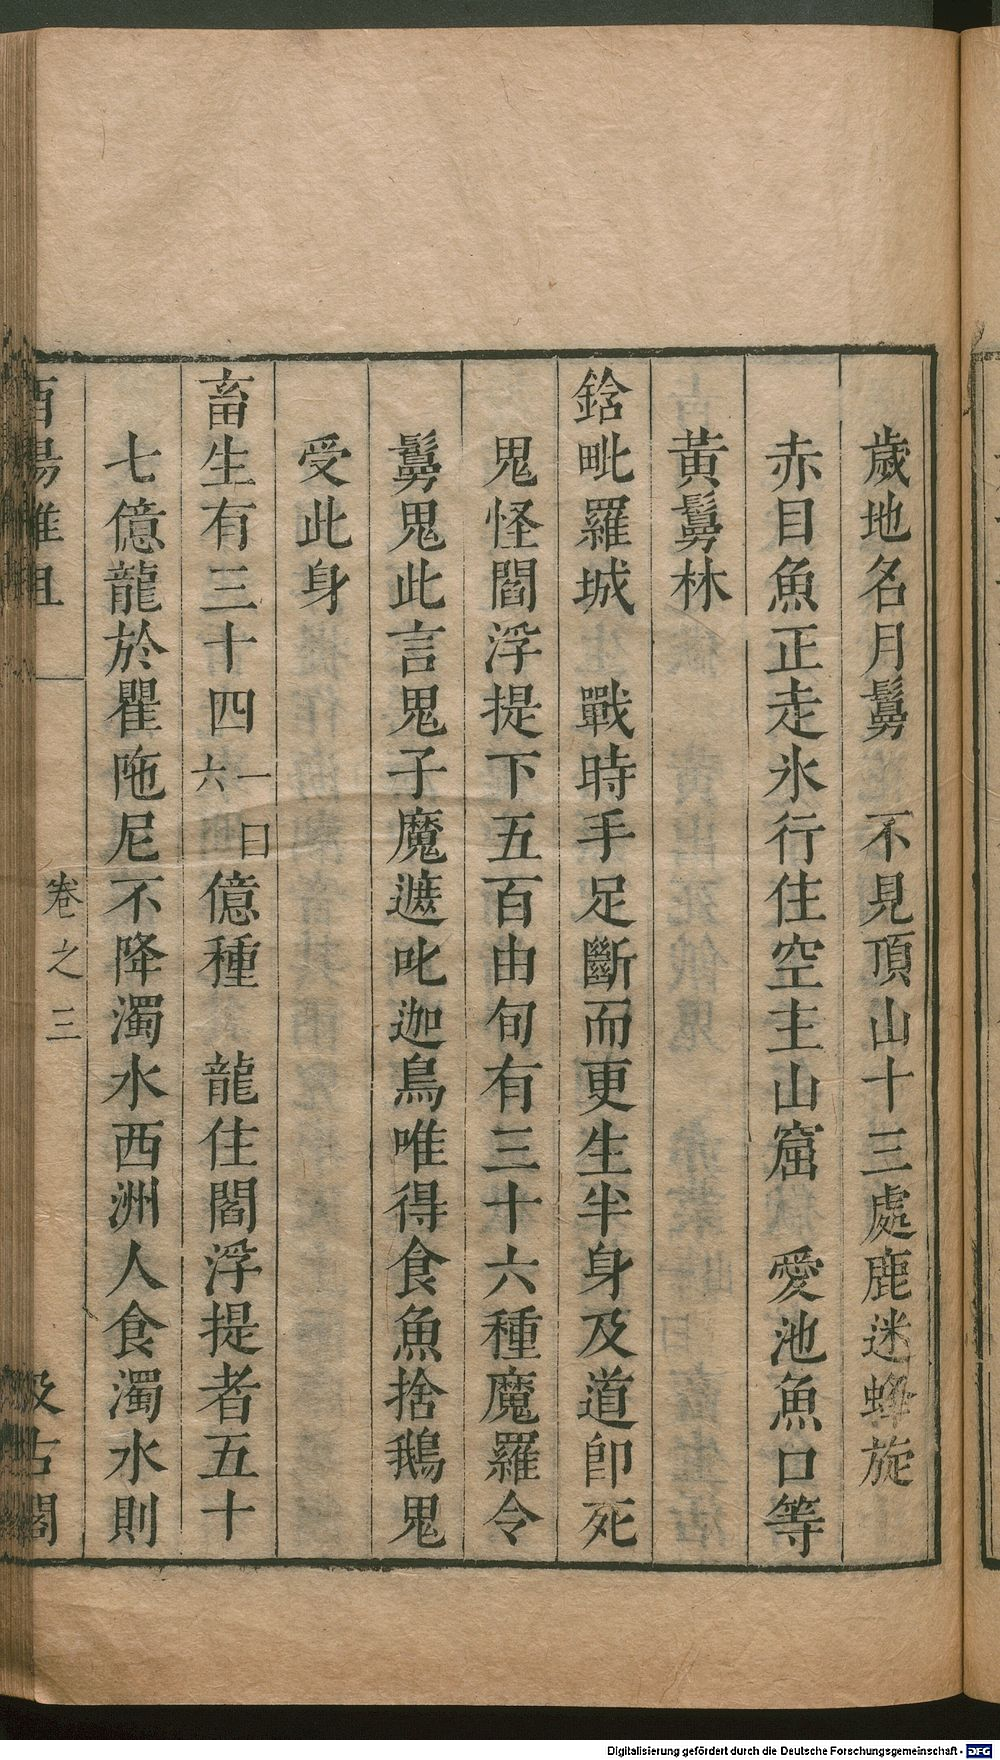 歲地名月鬘　不見頂山十三處鹿迷蜂旋
赤目魚正走氷行住空主山窟　愛池魚口等
黃鬘林
鋡毗羅城　戰時手足斷而更生半身及道卽死
鬼怪閻浮提下五百由旬有三十六種魔羅令
鬘鬼此言鬼子魔遮叱迦鳥唯得食魚捨鵝鬼
受此身
畜生有三十四一曰六億種　龍住閻浮提者五十
七億龍於瞿陁尼不降濁水西洲人食濁水則
酉陽雜俎　卷之三　汲古閣
Digitalisierung gefördert durch die Deutsche Forschungsgemeinschaft - DFG